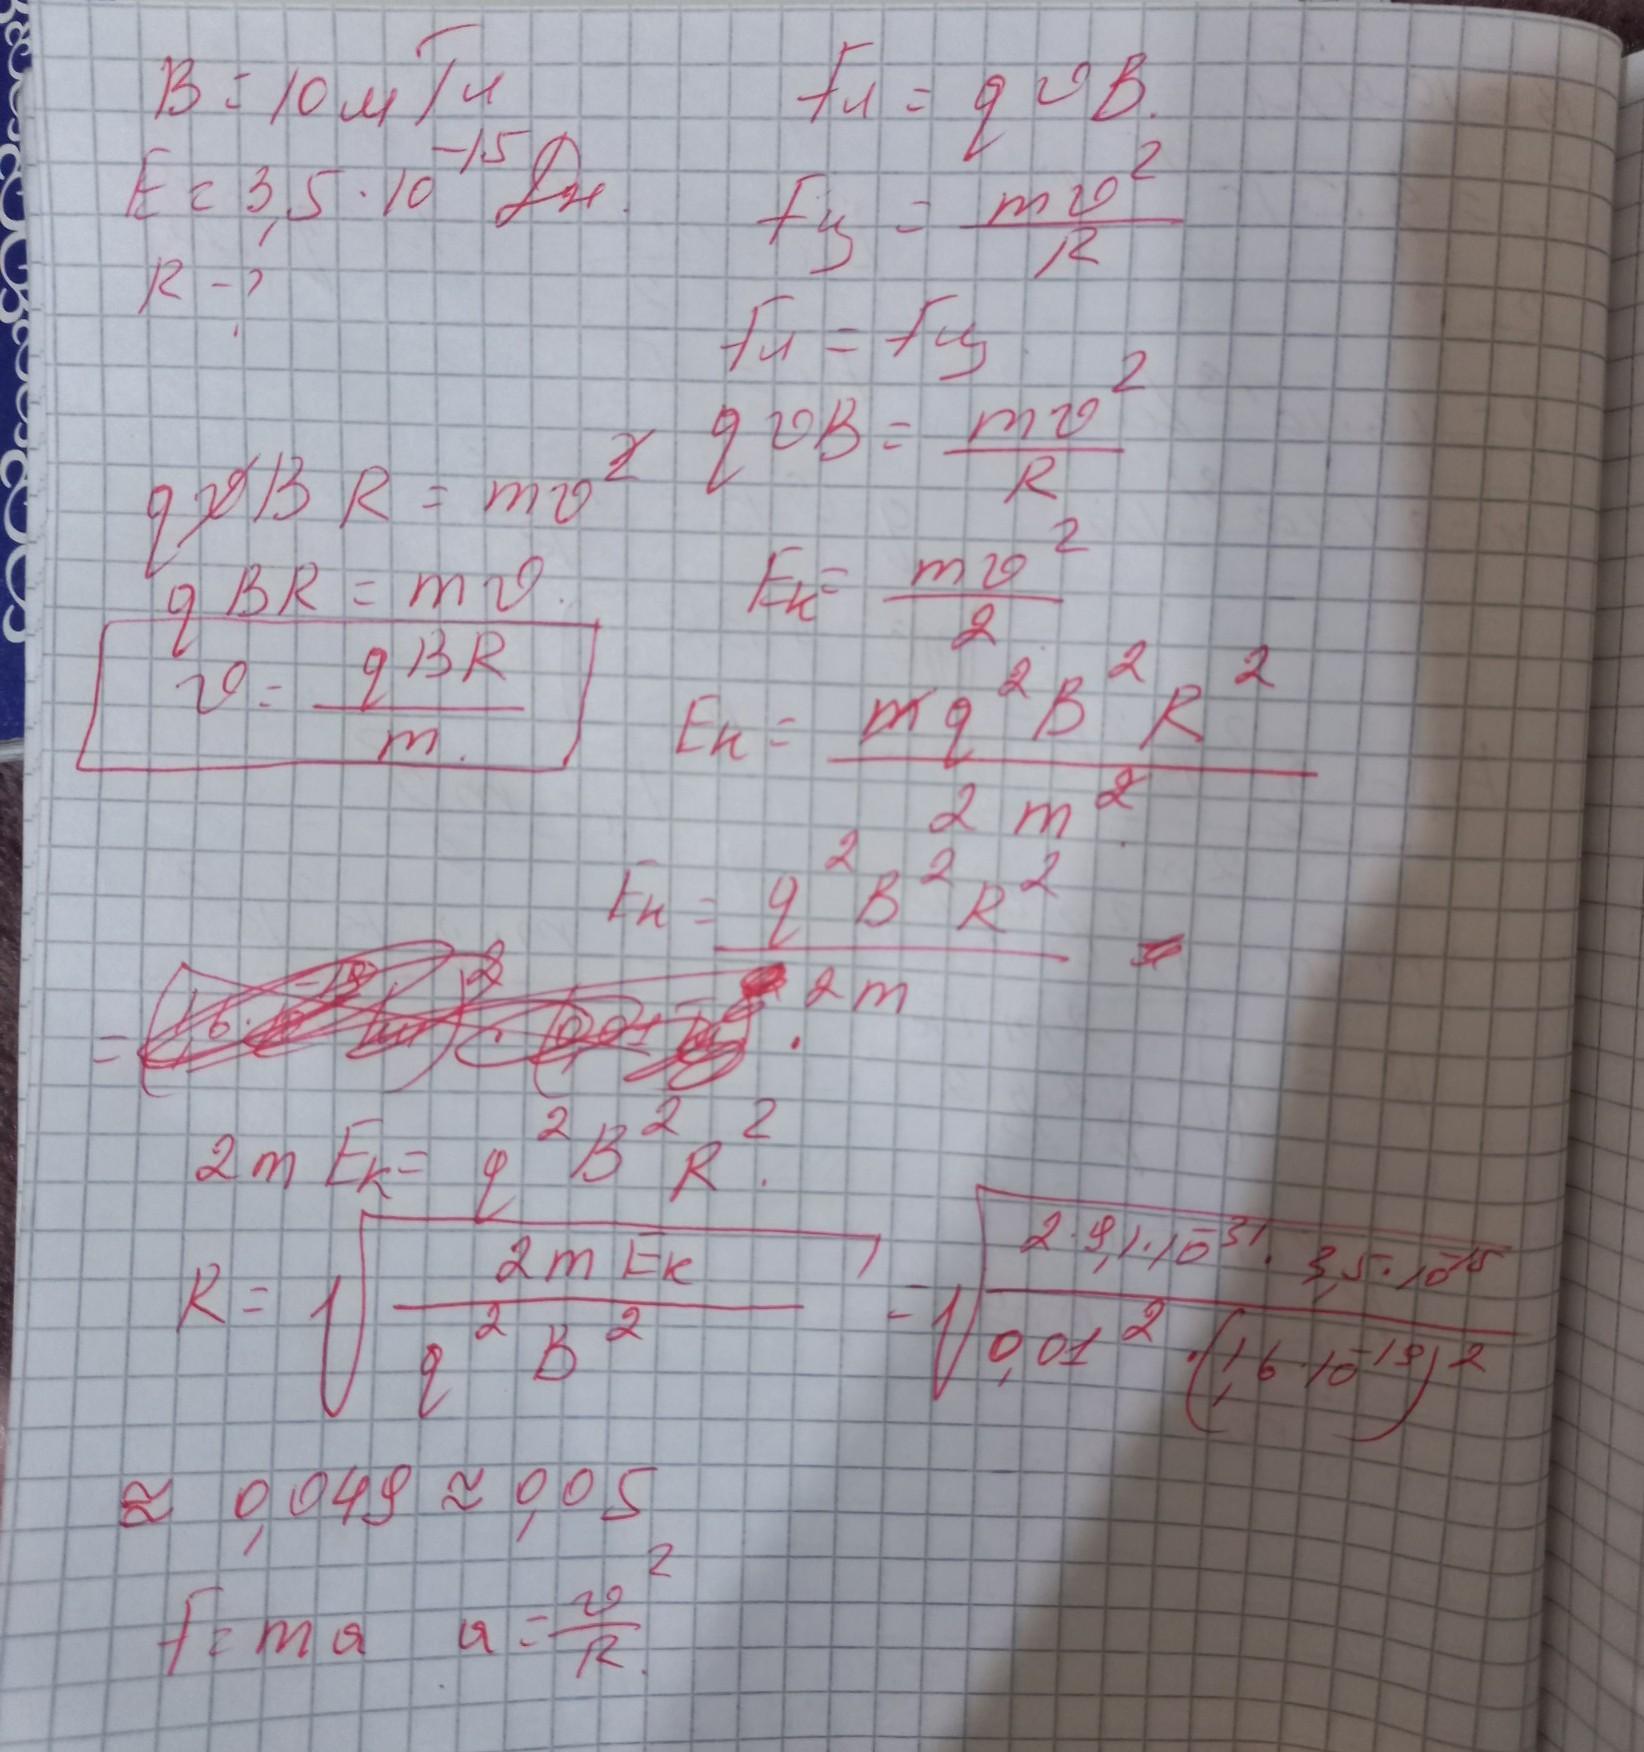 B = 10 мТл
E = 3,5 · 10^-15 Дж.
R - ?
Fл = qυB.
Fц = mυ^2 / R
Fл = Fц
qυB = mυ^2 / R
qυBR = mυ^2
qBR = mυ.
υ = qBR / m.
Eк = mυ^2 / 2
Eк = mq^2B^2R^2 / 2m^2
Eк = q^2B^2R^2 / 2m
2mEк = q^2B^2R^2.
R = √(2mEк / q^2B^2) = √(2·9,1·10^-31 · 3,5·10^-15 / 0,01^2 · (1,6·10^-19)^2)
≈ 0,049 ≈ 0,05
F = ma a = υ^2 / R.